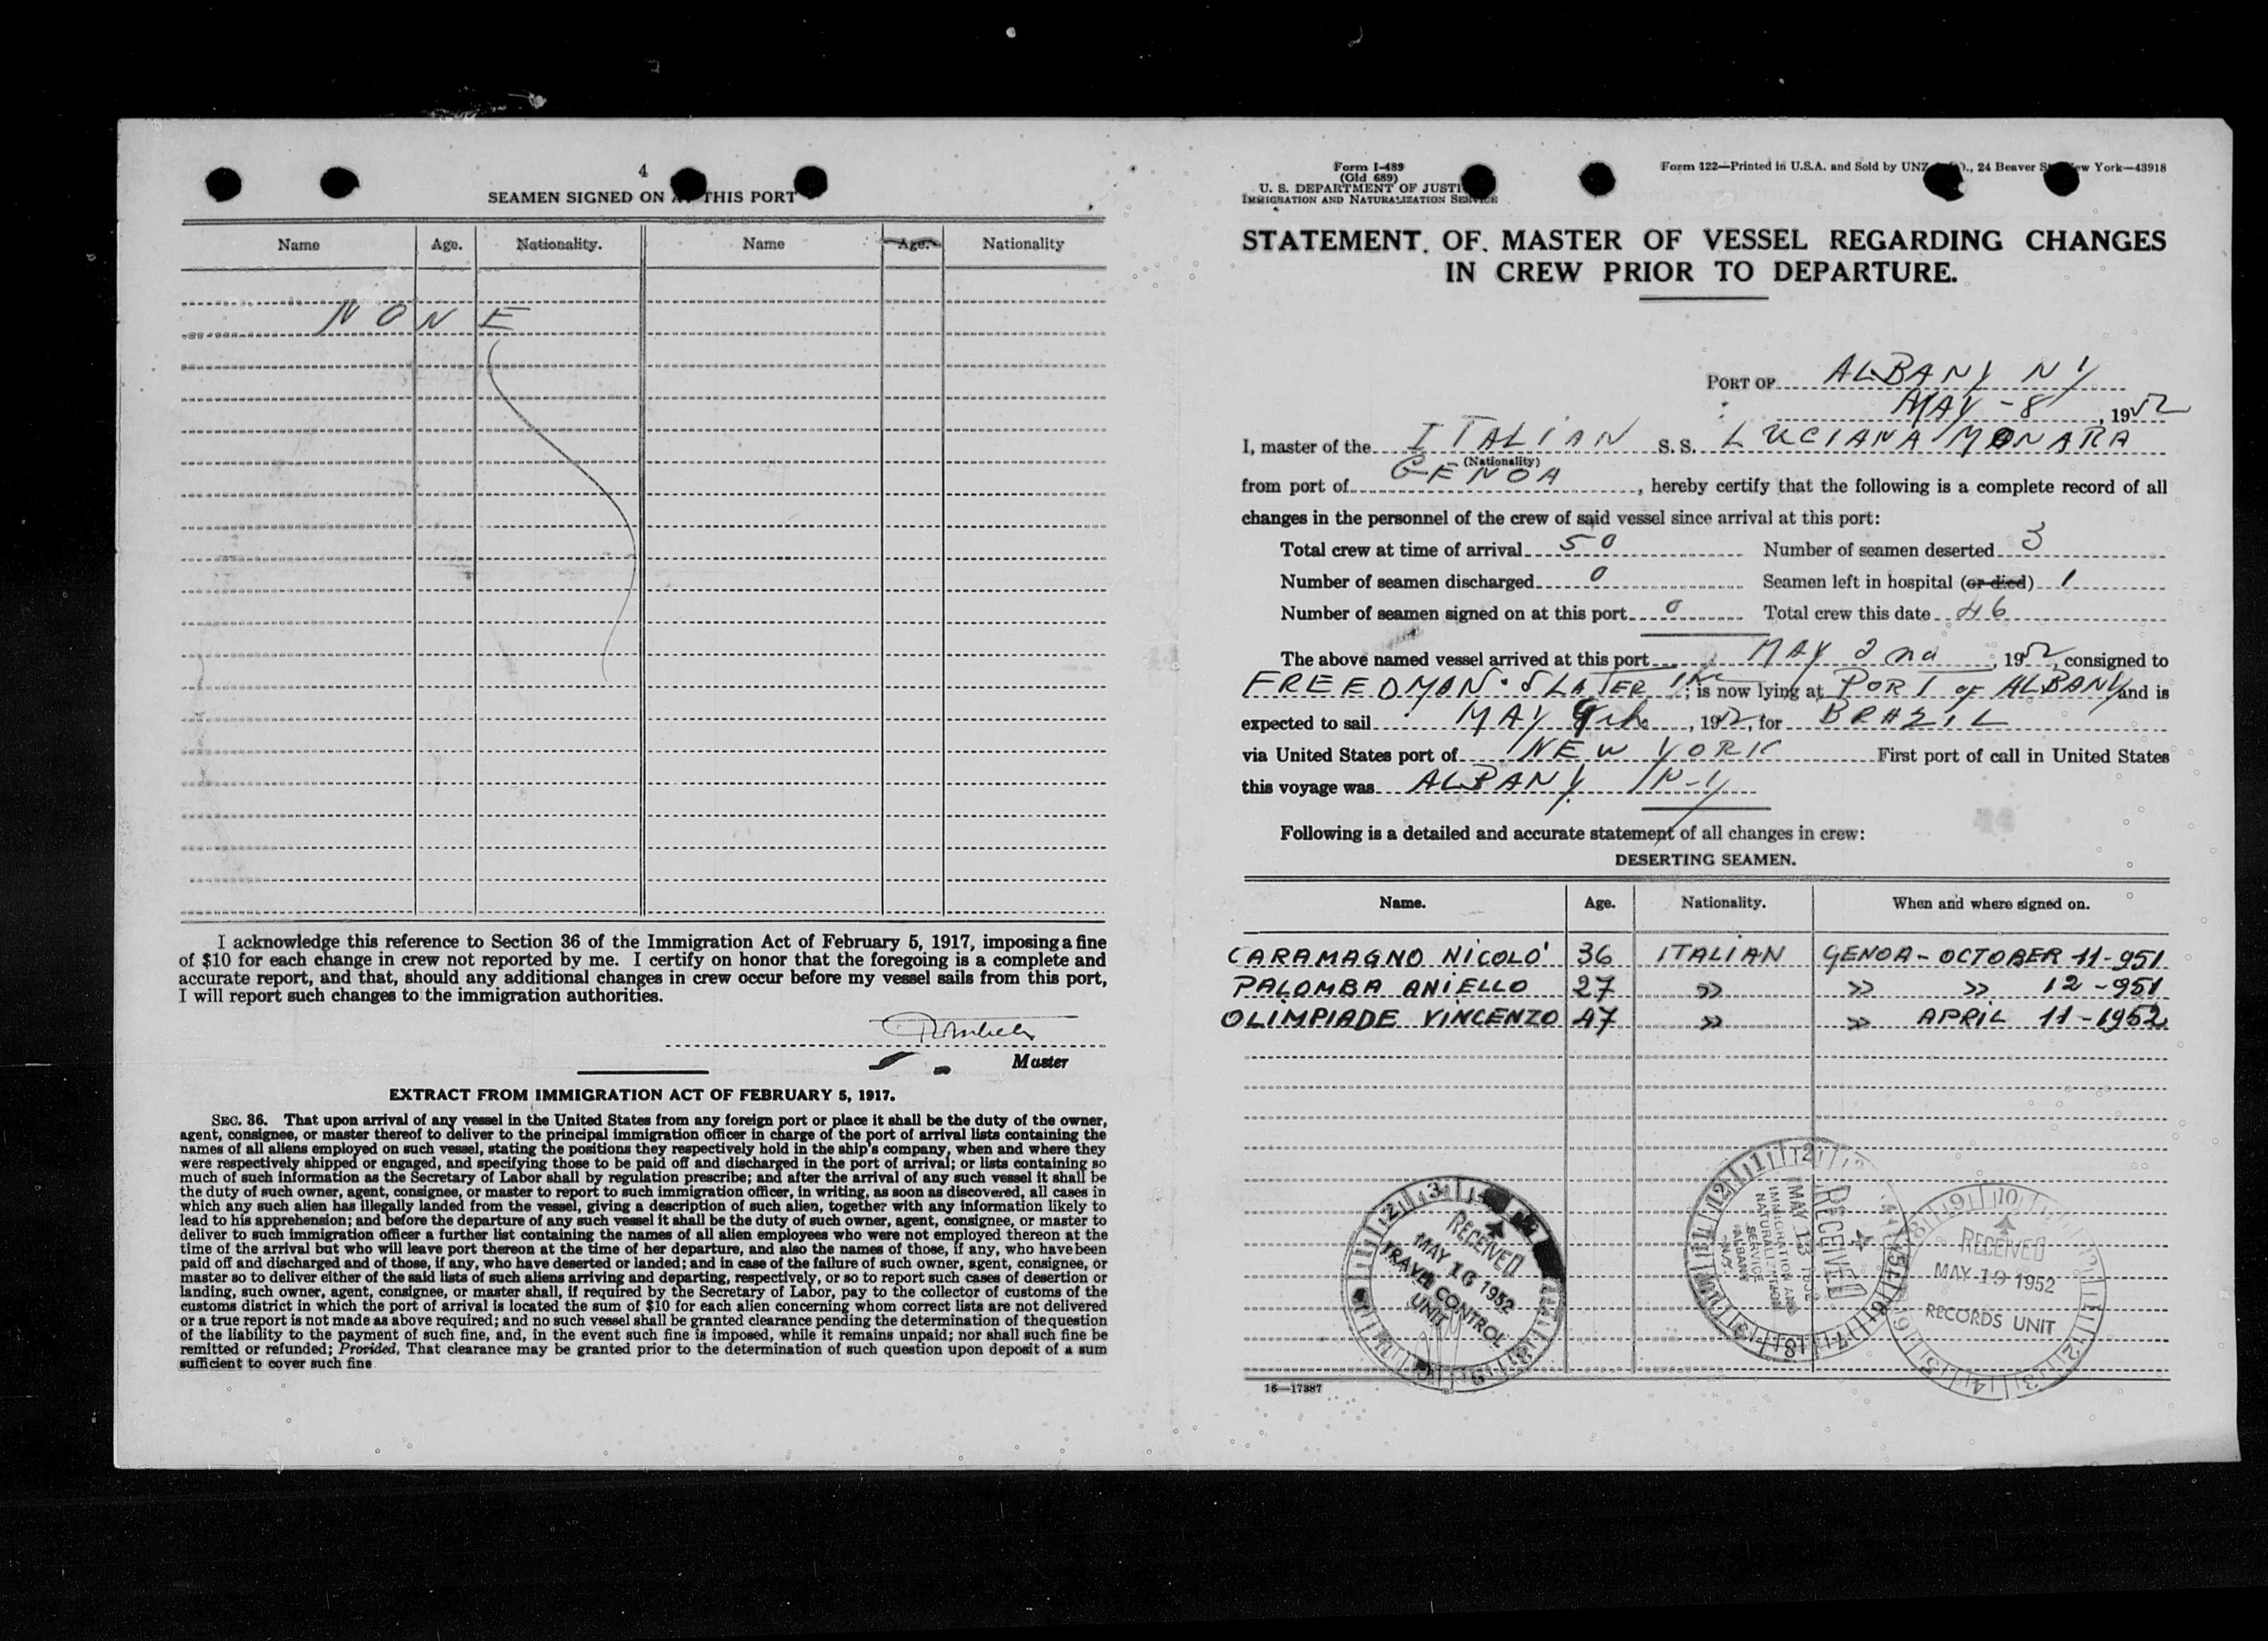 4
SEAMEN SIGNED ON AT THIS PORT
Name Age. Nationality. Name Age. Nationality
NONE
I acknowledge this reference to Section 36 of the Immigration Act of February 5, 1917, imposing a fine
of $10 for each change in crew not reported by me. I certify on honor that the foregoing is a complete and
accurate report, and that, should any additional changes in crew occur before my vessel sails from this port,
I will report such changes to the immigration authorities.
Master
EXTRACT FROM IMMIGRATION ACT OF FEBRUARY 5, 1917.
SEC. 36. That upon arrival of any vessel in the United States from any foreign port or place it shall be the duty of the owner,
agent, consignee, or master thereof to deliver to the principal immigration officer in charge of the port of arrival lists containing the
names of all aliens employed on such vessel, stating the positions they respectively hold in the ship's company, when and where they
were respectively shipped or engaged, and specifying those to be paid off and discharged in the port of arrival; or lists containing so
much of such information as the Secretary of Labor shall by regulation prescribe; and after the arrival of any such vessel it shall be
the duty of such owner, agent, consignee, or master to report to such immigration officer, in writing, as soon as discovered, all cases in
which any such alien has illegally landed from the vessel, giving a description of such alien, together with any information likely to
lead to his apprehension; and before the departure of any such vessel it shall be the duty of such owner, agent, consignee, or master to
deliver to such immigration officer a further list containing the names of all alien employees who were not employed thereon at the
time of the arrival but who will leave port thereon at the time of her departure, and also the names of those, if any, who have been
paid off and discharged and of those, if any, who have deserted or landed; and in case of the failure of such owner, agent, consignee, or
master so to deliver either of the said lists of such aliens arriving and departing, respectively, or so to report such cases of desertion or
landing, such owner, agent, consignee, or master shall, if required by the Secretary of Labor, pay to the collector of customs of the
customs district in which the port of arrival is located the sum of $10 for each alien concerning whom correct lists are not delivered
or a true report is not made as above required; and no such vessel shall be granted clearance pending the determination of the question
of the liability to the payment of such fine, and, in the event such fine is imposed, while it remains unpaid; nor shall such fine be
remitted or refunded; Provided, That clearance may be granted prior to the determination of such question upon deposit of a sum
sufficient to cover such fine
Form I-489
(Old 689)
U. S. DEPARTMENT OF JUSTICE
IMMIGRATION AND NATURALIZATION SERVICE
Form 122—Printed in U.S.A. and Sold by UNZ & CO., 24 Beaver St., New York—43918
STATEMENT OF MASTER OF VESSEL REGARDING CHANGES
IN CREW PRIOR TO DEPARTURE.
PORT OF ALBANY NY
MAY - 8, 1952
I, master of the ITALIAN S. S. LUCIANA MANARA
(Nationality)
from port of GENOA, hereby certify that the following is a complete record of all
changes in the personnel of the crew of said vessel since arrival at this port:
Total crew at time of arrival 50 Number of seamen deserted 3
Number of seamen discharged 0 Seamen left in hospital (or died) 1
Number of seamen signed on at this port 0 Total crew this date 46
The above named vessel arrived at this port MAY 2nd, 1952, consigned to
FREEDMAN. SLATER Inc; is now lying at PORT OF ALBANY and is
expected to sail MAY 9th, 1952, for BRAZIL
via United States port of NEW YORK First port of call in United States
this voyage was ALBANY N-Y
Following is a detailed and accurate statement of all changes in crew:
DESERTING SEAMEN.
Name. Age. Nationality. When and where signed on.
CARAMAGNO NICOLO' 36 ITALIAN GENOA - OCTOBER 11-951
PALOMBA ANIELLO 27 » » » 12-951
OLIMPIADE VINCENZO 47 » » APRIL 11-1952
RECEIVED
MAY 16 1952
TRAVEL CONTROL
UNIT
RECEIVED
MAY 13 1952
IMMIGRATION AND
NATURALIZATION
SERVICE
ALBANY
N.Y.
RECEIVED
MAY 19 1952
RECORDS UNIT
16—17387